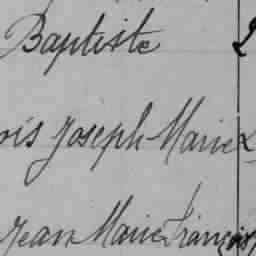 Baptiste
ois Joseph Marie
Jean Marie François